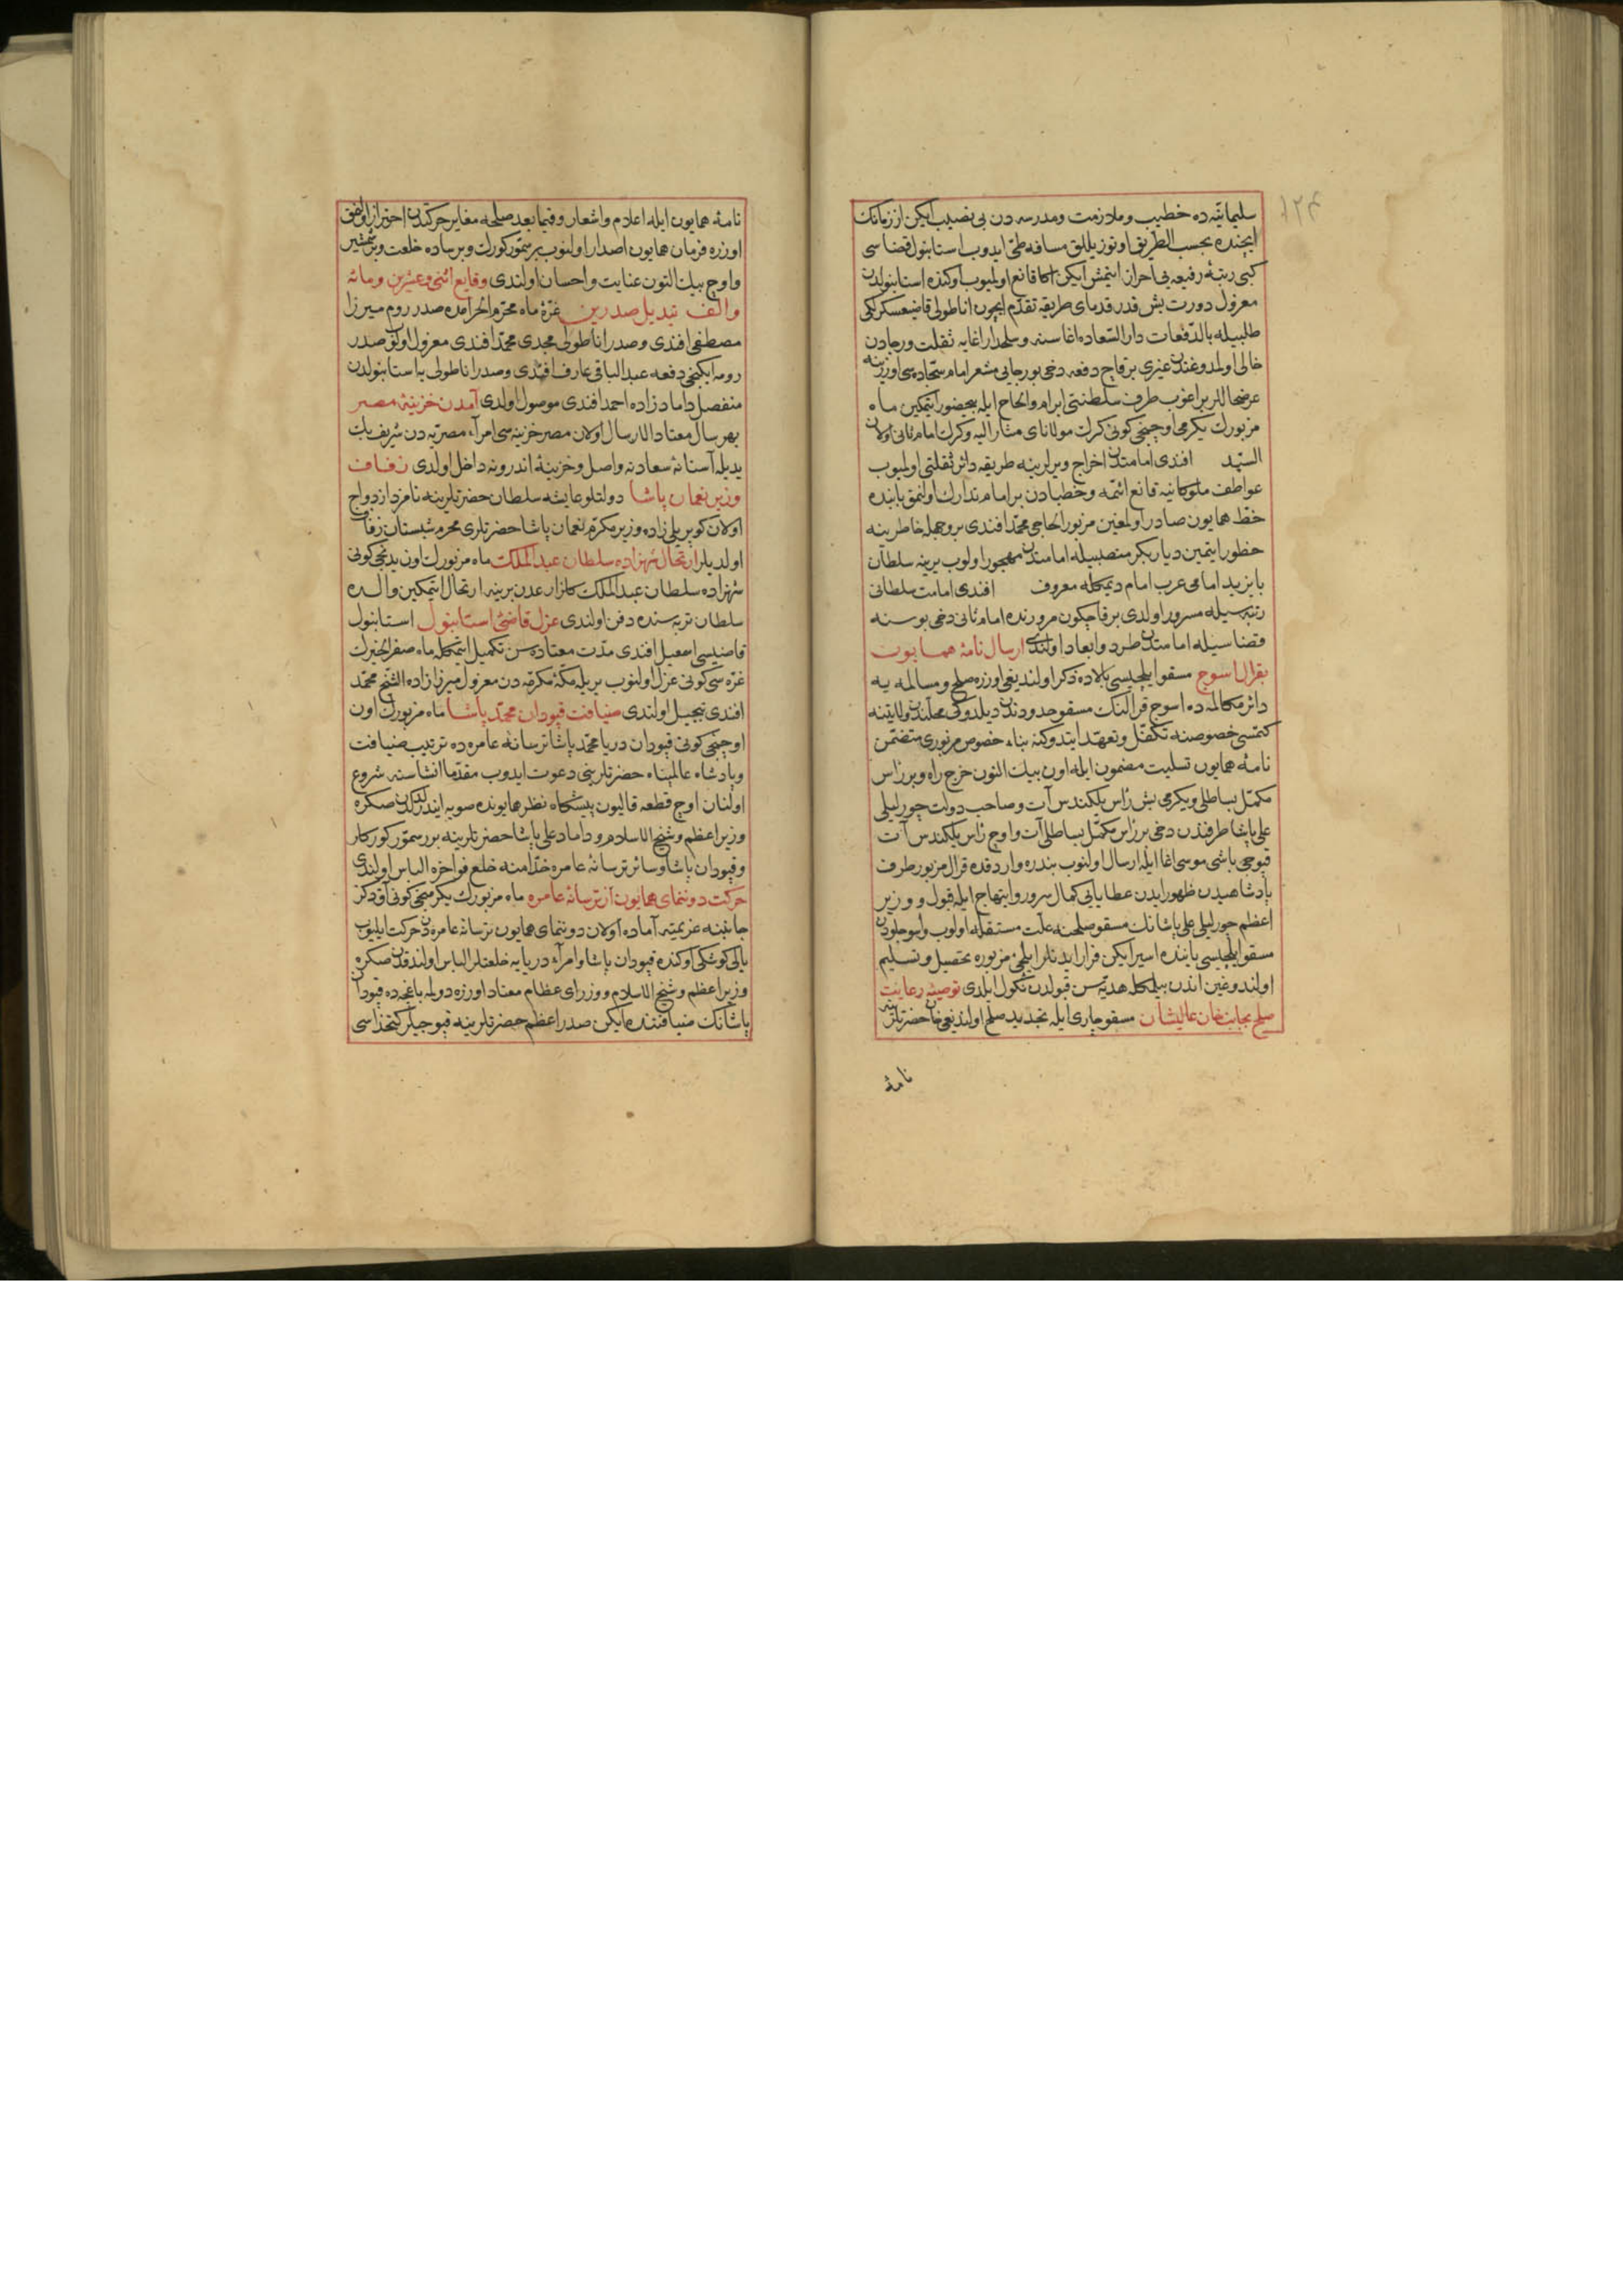 ١٢٤
سلیمانیه ده خطیب و ملازمت و مدرسه دن بی نصیب ایکن از زمانك
ایچنده بحسب الطریق اوتوز ییللق مسافه طی ایدوب استانبول قضاسی
کبی رتبۀ رفیعه یی احراز ایتمش ایکن اکا قانع اولمیوب اوکنده استانبولدن
معزول دورت بش قدر قدمای طریقه تقدم ایچون اناطولی قاضیعسکرلکی
طلبیله بالدفعات دار السعاده اغاسنه و سلحدار اغایه ثقلت و رجادن
خالی اولمدوغندن غیری بر قاچ دفعه دخی بو رجایی مشعر امام سجاده سی اوزرینه
عرضحاللر براغوب طرف سلطنتی ابرام و الحاح ایله بیحضور ایتمکین ماه
مزبورك یکرمی اوچنجی کونی کرك مولانای مشار الیه و کرك امام ثانی اولان
السید افندی امامتدن اخراج و یرلرینه طریقه دائر ثقلتی اولمیوب
عواطف ملوکانیه قانع ائمه و خطبادن بر امام تدارك اولنمق بابنده
خط همایون صادر اولمغین مزبور الحاجی محمد افندی بر وجهله خاطرینه
خطور ایتمین دیاربکر منصبیله امامتدن مهجور اولوب یرینه سلطان
بایزید امامی عرب امام دیمکله معروف افندی امامت سلطانی
رتبه سیله مسرور اولدی بر قاچ کون مرورنده امام ثانی دخی بوسنه
قضاسیله امامتدن طرد و ابعاد اولندی ارسال نامۀ همایون
بقرال اسوج مسقو ایلچیسی بالاده ذکر اولندیغی اوزره صلح و مسالمه یه
دائر مکالمه ده اسوج قرالنك مسقو حدودندن دیلدوکی محلدن ولایتنه
کتمسی خصوصنه تکفل و تعهد ایتدوکنه بناء خصوص مزبوری متضمن
نامۀ همایون تسلیت مضمون ایله اون بیك التون خرج راه و بر رأس
مکمل بساطلی و یکرمی بش رأس یلکندس آت و صاحب دولت چورلیلی
علی پاشا طرفندن دخی بر رأس مکمل بساطلی آت و اوچ رأس یلکندس آت
قپوجی باشی موسی اغا ایله ارسال اولنوب بندره واردقده قرال مزبور طرف
پادشاهیدن ظهور ایدن عطایایی کمال سرور و ابتهاج ایله قبول و وزیر
اعظم چورلیلی علی پاشانك مسقو صلحنه علت مستقله اولوب و اسوجلودن
مسقو ایلچیسی یاننده اسیر ایکن فرار ایدنلر ایلچی مزبوره تحصیل و تسلیم
اولندوغین اندن بیلمکله هدیه سن قبولدن نکول ایلدی توصیۀ رعایت
صلح بجانب خان عالیشان مسقو چاری ایله تجدید صلح اولندیغی خان حضرتلرینه
نامۀ
نامۀ همایون ایله اعلام و اشعار و فیما بعد صلحه مغایر حرکتدن احتراز اولنمق
اوزره فرمان همایون اصدار اولنوب بر سمور کورك و بر ساده خلعت و بر شمشیر
و اوچ بیك التون عنایت و احسان اولندی وقایع اثنی و عشرین و مائه
و الف تبدیل صدرین غرۀ ماه محرم الحرامده صدر روم میرزا
مصطفی افندی و صدر اناطولی مجدی محمد افندی معزول اولوب صدر
رومه ایکنجی دفعه عبد الباقی عارف افندی و صدر اناطولی یه استانبولدن
منفصل داماد زاده احمد افندی موصول اولدی آمدن خزینۀ مصر
بهر سال معتاد الارسال اولان مصر خزینه سی امرآء مصریه دن شریف بك
یدیله آستانۀ سعادته واصل و خزینۀ اندرونه داخل اولدی زفاف
وزیر نعمان پاشا دولتلو عایشه سلطان حضرتلرینه نامزد ازدواج
اولان کوپریلی زاده وزیر مکرم نعمان پاشا حضرتلری محرم شبستان زفاف
اولدیلر ارتحال شهزاده سلطان عبد الملك ماه مزبورك اون یدنجی کونی
شهزاده سلطان عبد الملك کلزار عدن برینه ارتحال ایتمکین والده
سلطان تربه سنده دفن اولندی عزل قاضئ استانبول استانبول
قاضیسی اسمعیل افندی مدت معتاده سن تکمیل ایتمکله ماه صفر الخیرك
غره سی کونی عزل اولنوب یریله مکۀ مکرمه دن معزول میرزا زاده الشیخ محمد
افندی تبجیل اولندی ضیافت قپودان محمد پاشا ماه مزبورك اون
اوچنجی کونی قپودان دریا محمد پاشا ترسانۀ عامره ده ترتیب ضیافت
و پادشاه عالمپناه حضرتلرینی دعوت ایدوب مقدما انشاسنه شروع
اولنان اوچ قطعه قالیون پیشکاه نظر همایونده صویه ایندرلدکدن صکره
وزیر اعظم و شیخ الاسلام و داماد علی پاشا حضرتلرینه برر سمور کورکلر
و قپودان پاشا و سائر ترسانۀ عامره خدامنه خلع فواخره الباس اولندی
حرکت دوننمای همایون از ترسانۀ عامره ماه مزبورك یکرمنجی کونی آق دکز
جانبنه عزیمته آماده اولان دوننمای همایون ترسانۀ عامره دن حرکت ایلیوب
یالی کوشکی اوکنده قپودان پاشا و امرآء دریایه خلعتلر الباس اولندقدن صکره
وزیر اعظم و شیخ الاسلام و وزرای عظام معتاد اوزره دولمه باغچه ده قپودان
پاشانك ضیافتنده ایکن صدر اعظم حضرتلرینه قپوجیلر کتخداسی